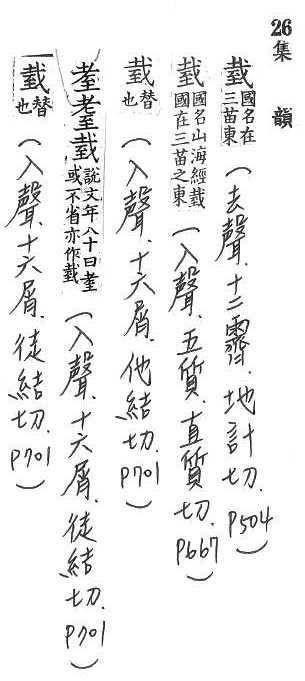 26 集韻
𢧤 國名在三苗東 (去聲.十二霽.地計切.P504)
𢧤 國名山海經𢧤國在三苗之東 (入聲.五質.直質切.P667)
𢧤 替也 (入聲.十六屑.他結切.P701)
耊耋𢧤 說文年八十曰耋或不省亦作𢧤 (入聲.十六屑.徒結切.P701)
𢧤 替也 (入聲.十六屑.徒結切.P701)